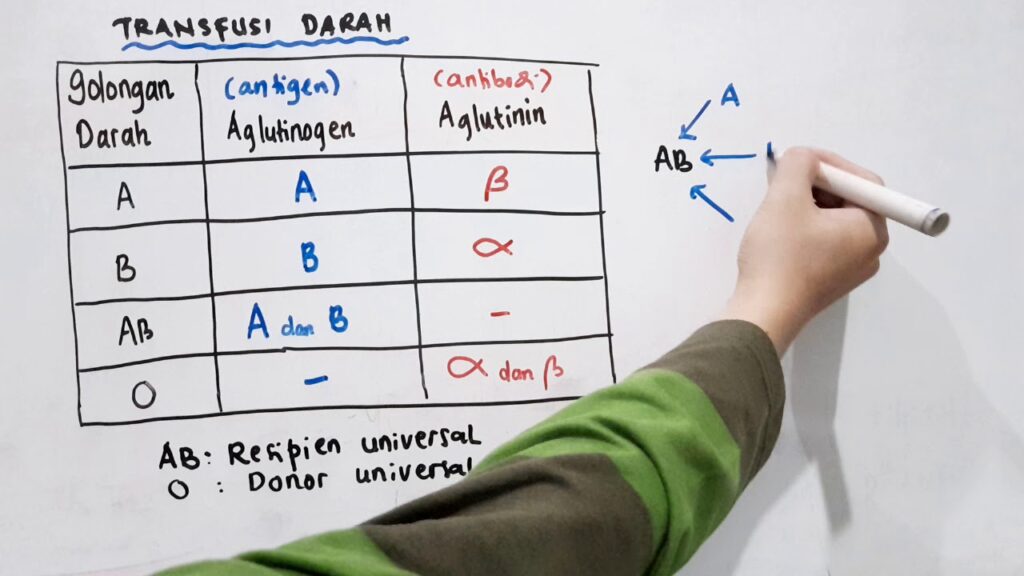 TRANSFUSI DARAH
golongan Darah | (antigen) Aglutinogen | (antibodi) Aglutinin
A | A | β
B | B | α
AB | A dan B | -
O | - | α dan β
AB: Resipien universal
O : Donor universal
A
AB